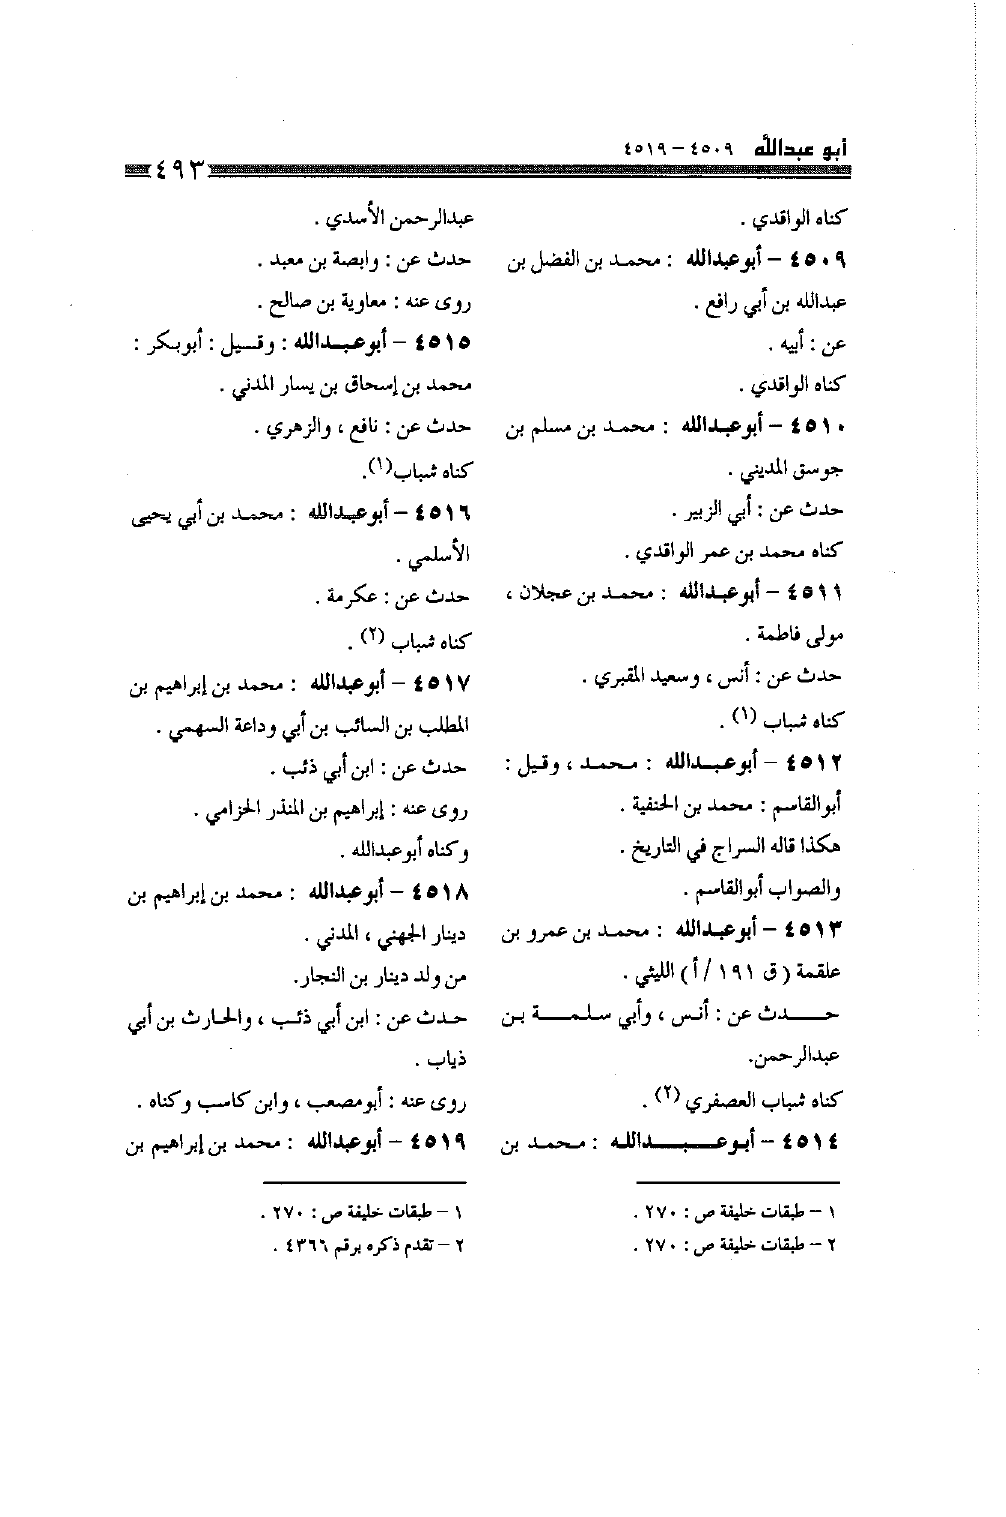 أبو عبدالله ٤٥٠٩ – ٤٥١٩
٤٩٣
كناه الواقدي .
٤٥٠٩ – أبوعبدالله : محمد بن الفضل بن
عبدالله بن أبي رافع .
عن : أبيه .
كناه الواقدي .
٤٥١٠ – أبوعبدالله : محمد بن مسلم بن
جوسق المديني .
حدث عن : أبي الزبير .
كناه محمد بن عمر الواقدي .
٤٥١١ – أبوعبدالله : محمد بن عجلان ،
مولى فاطمة .
حدث عن : أنس ، وسعيد المقبري .
كناه شباب (١) .
٤٥١٢ – أبوعبدالله : محمد ، وقيل :
أبوالقاسم : محمد بن الحنفية .
هكذا قاله السراج في التاريخ .
والصواب أبوالقاسم .
٤٥١٣ – أبوعبدالله : محمد بن عمرو بن
علقمة ( ق ١٩١ / أ ) الليثي .
حدث عن : أنس ، وأبي سلمة بن
عبدالرحمن.
كناه شباب العصفري (٢) .
٤٥١٤ – أبوعبدالله : محمد بن
١ – طبقات خليفة ص : ٢٧٠ .
٢ – طبقات خليفة ص : ٢٧٠ .
عبدالرحمن الأسدي .
حدث عن : وابصة بن معبد .
روى عنه : معاوية بن صالح .
٤٥١٥ – أبوعبدالله : وقيل : أبوبكر :
محمد بن إسحاق بن يسار المدني .
حدث عن : نافع ، والزهري .
كناه شباب(١).
٤٥١٦ – أبوعبدالله : محمد بن أبي يحيى
الأسلمي .
حدث عن : عكرمة .
كناه شباب (٢) .
٤٥١٧ – أبوعبدالله : محمد بن إبراهيم بن
المطلب بن السائب بن أبي وداعة السهمي .
حدث عن : ابن أبي ذئب .
روى عنه : إبراهيم بن المنذر الحزامي .
وكناه أبوعبدالله .
٤٥١٨ – أبوعبدالله : محمد بن إبراهيم بن
دينار الجهني ، المدني .
من ولد دينار بن النجار.
حدث عن : ابن أبي ذئب ، والحارث بن أبي
ذياب .
روى عنه : أبومصعب ، وابن كاسب وكناه .
٤٥١٩ – أبوعبدالله : محمد بن إبراهيم بن
١ – طبقات خليفة ص : ٢٧٠ .
٢ – تقدم ذكره برقم ٤٣٦٦ .